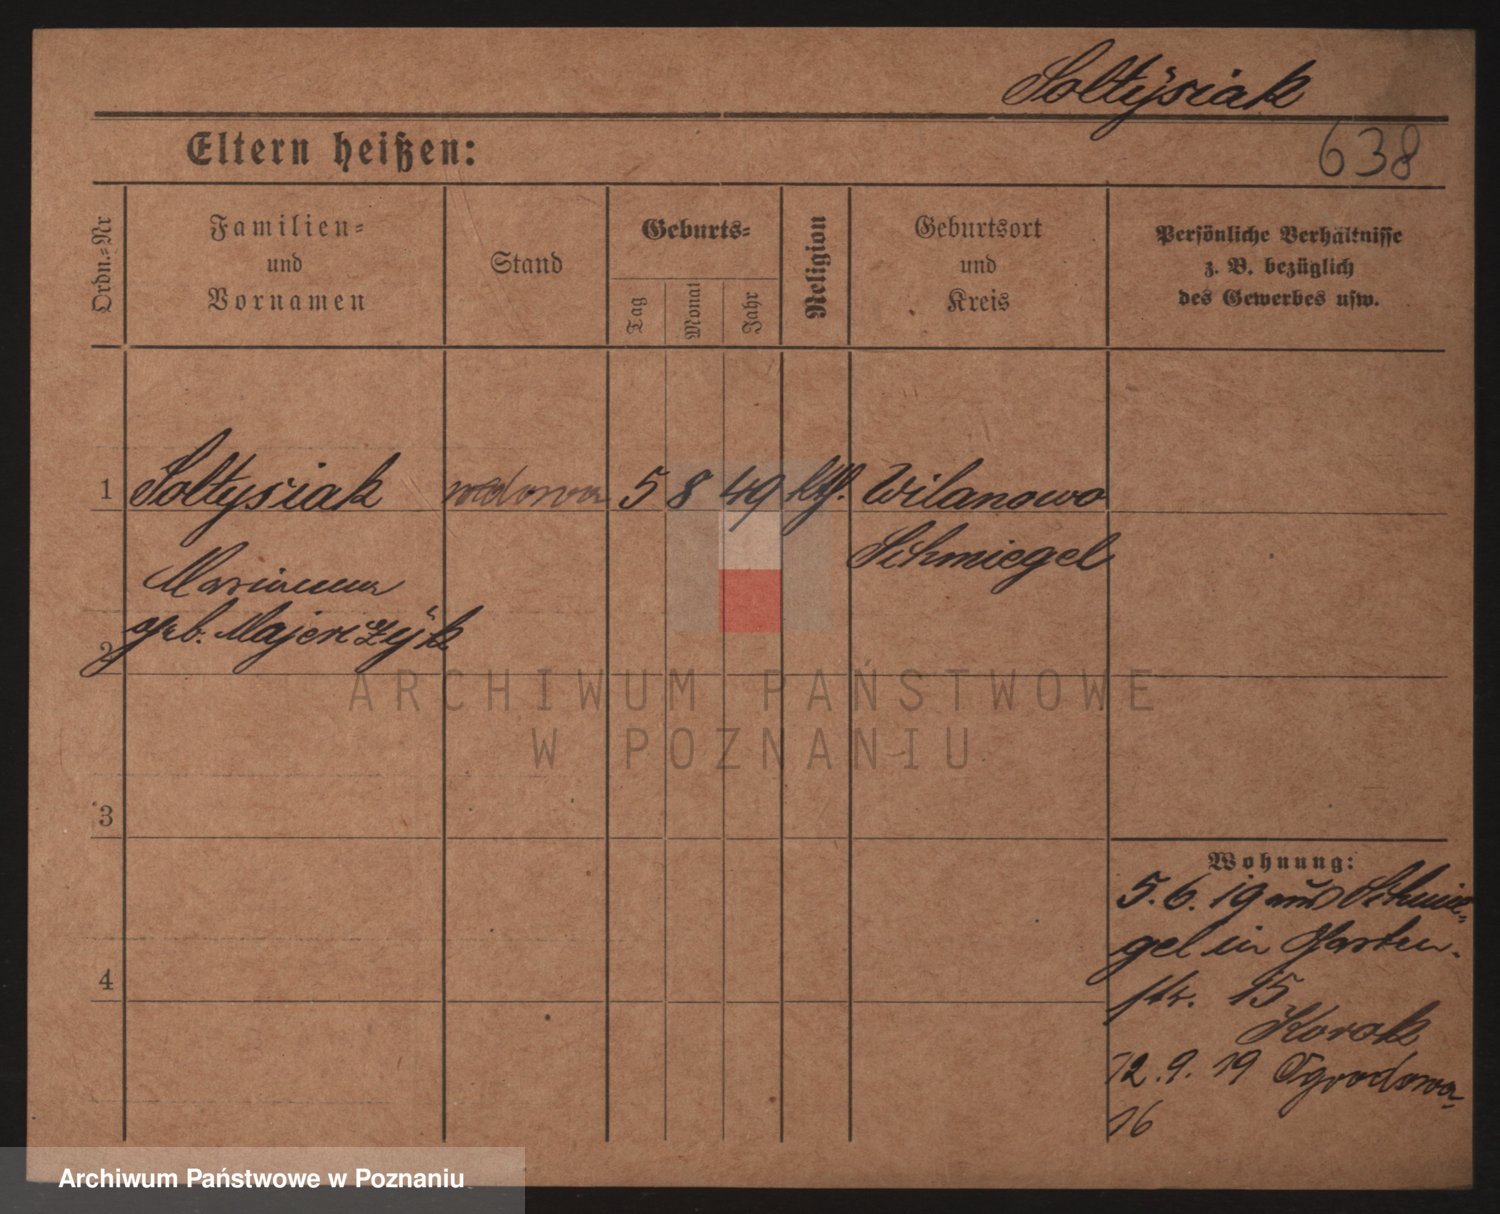 Sołtysiak
638
Eltern heißen:
Ordn.-Nr
Familien-
und
Vornamen
Stand
Geburts-
Tag
Monat
Jahr
Religion
Geburtsort
und
Kreis
Persönliche Verhältnisse
z. B. bezüglich
des Gewerbes usw.
1 Sołtysiak wdowa 5 8 49 ktl. Wilanowo
Schmiegel
Marianna
geb. Majerczÿk
2
3
4
Wohnung:
5.6.19 aus Schmie-
gel in Garten-
str. 15
Korak
12.9.19 Ogrodowa
16
ARCHIWUM PAŃSTWOWE
W POZNANIU
Archiwum Państwowe w Poznaniu